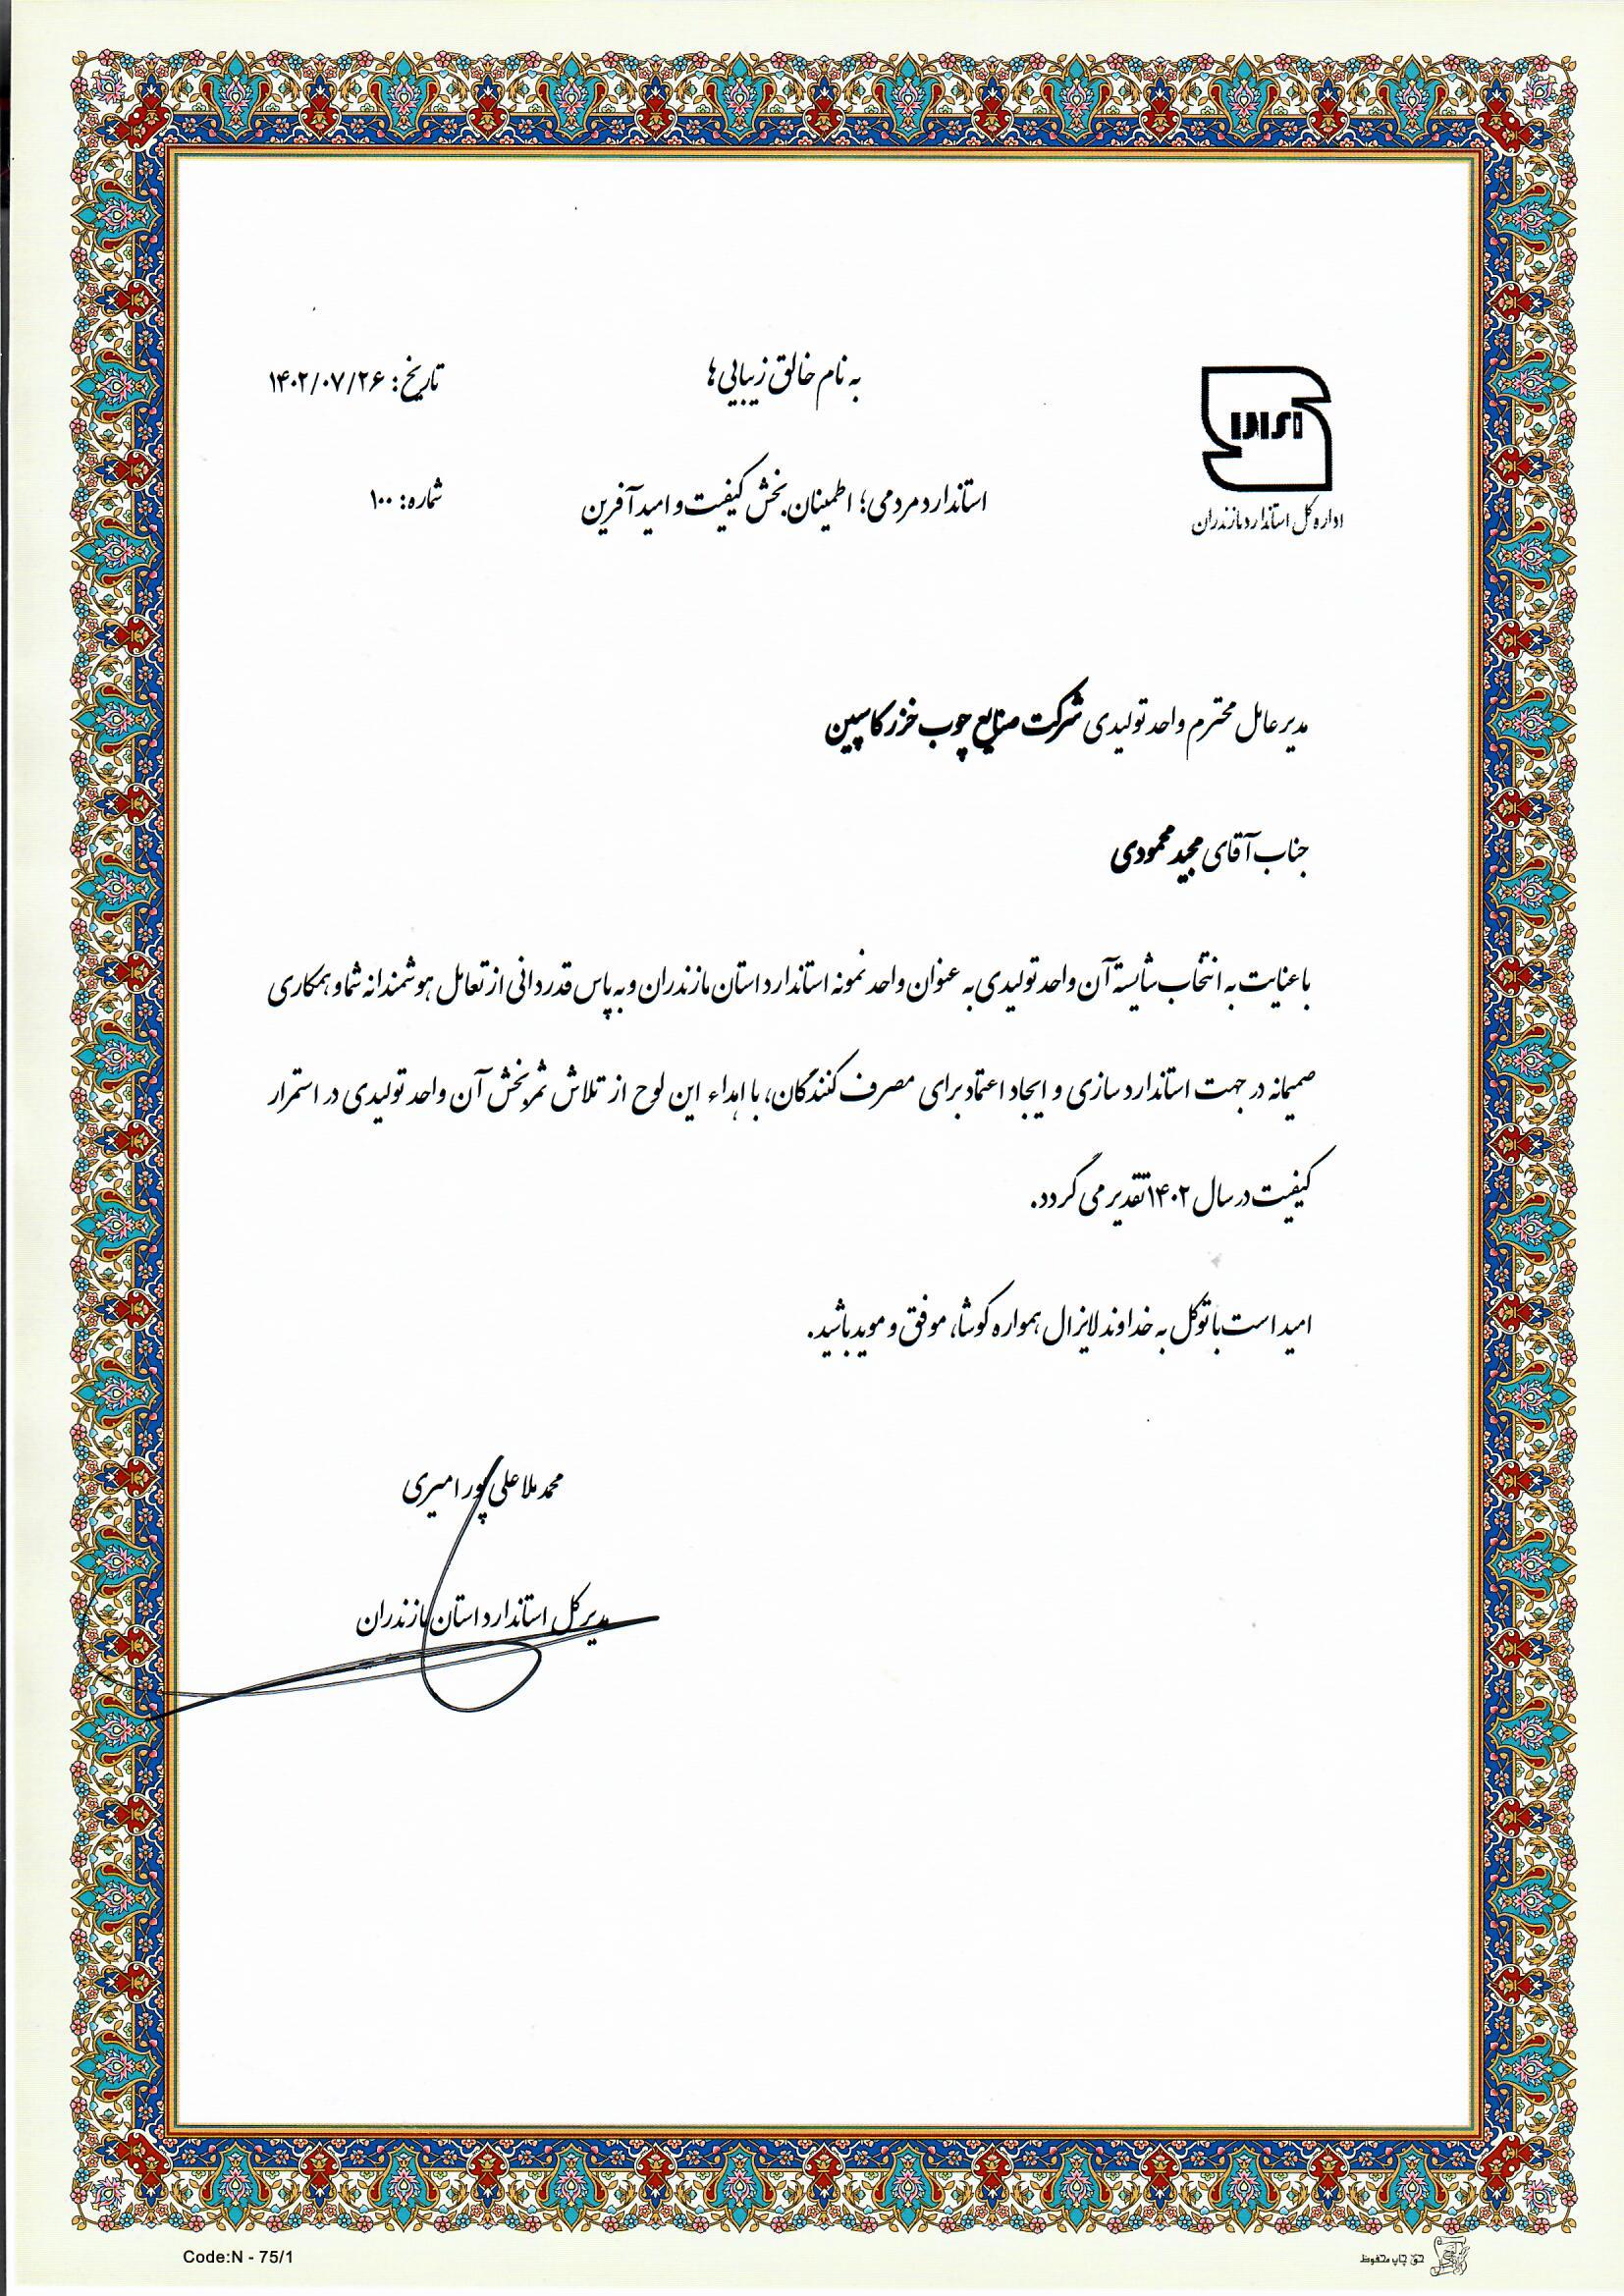 به نام خالق زیبایی ها
تاریخ: ۱۴۰۲/۰۷/۲۶
استاندارد مردمی؛ اطمینان بخش کیفیت و امید آفرین
شماره: ۱۰۰
اداره کل استاندارد مازندران
مدیر عامل محترم واحد تولیدی شرکت صنایع چوب خزر کاسپین
جناب آقای مجید محمودی
با عنایت به انتخاب شایسته آن واحد تولیدی به عنوان واحد نمونه استاندارد استان مازندران و به پاس قدردانی از تعامل هوشمندانه شما و همکاری
صمیمانه در جهت استاندارد سازی و ایجاد اعتماد برای مصرف کنندگان، با اهداء این لوح از تلاش ثمربخش آن واحد تولیدی در استمرار
کیفیت در سال ۱۴۰۲ تقدیر می گردد.
امید است با توکل به خداوند لایزال همواره کوشا، موفق و موید باشید.
محمد ملا علی پور امیری
مدیر کل استاندارد استان مازندران
Code:N - 75/1
حق چاپ محفوظ